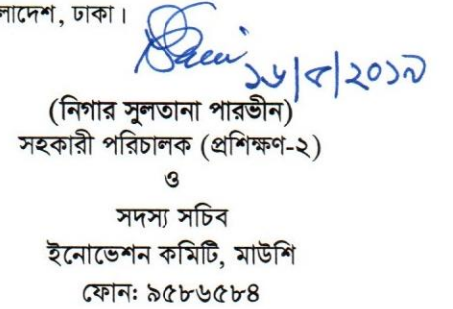 লাদেশ, ঢাকা।
১৬/৫/২০১৯
(নিগার সুলতানা পারভীন)
সহকারী পরিচালক (প্রশিক্ষণ-২)
ও
সদস্য সচিব
ইনোভেশন কমিটি, মাউশি
ফোনঃ ৯৫৮৬৫৮৪